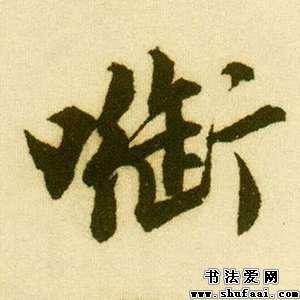 㘅
书法爱网
www.shufaai.com